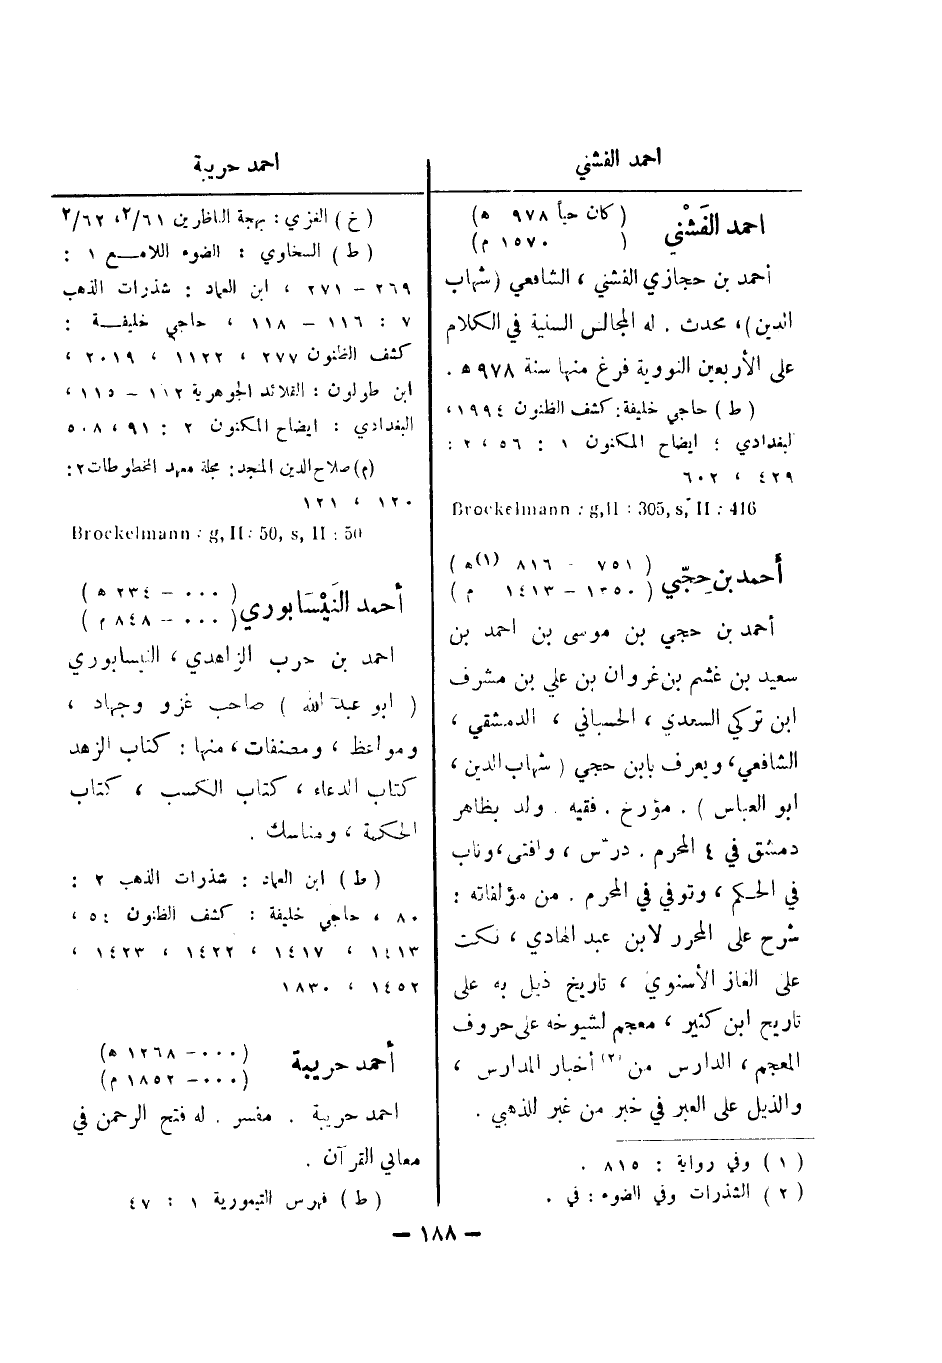 احمد الفشني
احمد الفَشْني ( كان حياً ٩٧٨ ھ )
( ١٥٧٠ م )
أحمد بن حجازي الفشني ، الشافعي (شهاب
الدين)، محدث . له المجالس السنية في الكلام
على الأربعين النووية فرغ منها سنة ٩٧٨ ھ .
( ط ) حاجي خليفة: كشف الظنون ١٩٩٤،
البغدادي : ايضاح المكنون ١ : ٥٦ ، ٢ :
٤٢٩ ، ٦٠٢
Brockelmann : g,II : 305, s, II : 416
أحمد بن حِجّي ( ٧٥١ - ٨١٦ (١) ھ )
( ١٣٥٠ – ١٤١٣ م )
أحمد بن حجي بن موسى بن احمد بن
سعيد بن غشم بن غروان بن علي بن مشرف
ابن تركي السعدي ، الحسباني ، الدمشقي ،
الشافعي، ويعرف بابن حجي ( شهاب الدين ،
ابو العباس ) . مؤرخ . فقيه . ولد بظاهر
دمشق في ٤ المحرم . درّس ، وافتى، وناب
في الحكم ، وتوفي في المحرم . من مؤلفاته :
شرح على المحرر لابن عبد الهادي ، نكت
على الغاز الأسنوي ، تاريخ ذيل به على
تاريخ ابن كثير ، معجم لشيوخه على حروف
المعجم ، الدارس من (٢) أخبار المدارس ،
والذيل على العبر في خبر من غبر للذهبي .
( ١ ) وفي رواية : ٨١٥ .
( ٢ ) الشذرات وفي الضوء : في .
احمد حريبة
( خ ) الغزي : بهجة الناظرين ٦١/٢، ٦٢/٢
( ط ) السخاوي : الضوء اللامع ١ :
٢٦٩ – ٢٧١ ، ابن العماد : شذرات الذهب
٧ : ١١٦ – ١١٨ ، حاجي خليفة :
كشف الظنون ٢٧٧ ، ١١٢٢ ، ٢٠١٩ ،
ابن طولون : القلائد الجوهرية ١١٢ – ١١٥ ،
البغدادي : ايضاح المكنون ٢ : ٩١ ، ٥٠٨
(م) صلاح الدين المنجد: مجلة معهد المخطوطات ٢:
١٢٠ ، ١٢١
Brockelmann : g, II : 50, s, II : 50
أحمد النَيْسَابوري ( ٠٠٠ – ٢٣٤ ھ )
( ٠٠٠ – ٨٤٨ م )
احمد بن حرب الزاهدي ، النيسابوري
( ابو عبد الله ) صاحب غزو وجهاد ،
ومواعظ ، ومصنفات ، منها : كتاب الزهد
كتاب الدعاء ، كتاب الكسب ، كتاب
الحكمة ، ومناسك .
( ط ) ابن العماد : شذرات الذهب ٢ :
٨٠ ، حاجي خليفة : كشف الظنون ٥٤ ،
١٤١٣ ، ١٤١٧ ، ١٤٢٢ ، ١٤٢٣ ،
١٤٥٢ ، ١٨٣٠
أحمد حريبة (٠٠٠– ١٢٦٨ ھ )
(٠٠٠– ١٨٥٢ م )
احمد حريبة . مفسر . له فتح الرحمن في
معاني القرآن .
( ط ) فهرس التيمورية ١ : ٤٧
– ١٨٨ –